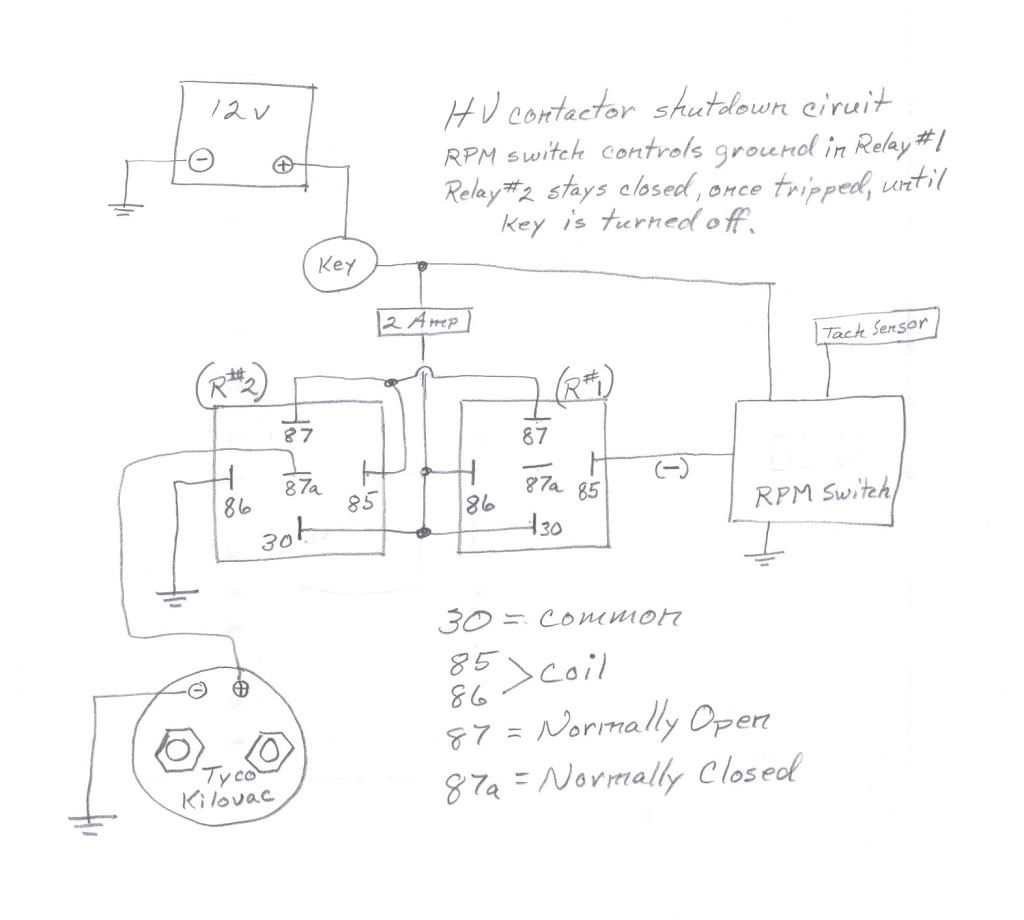 12V
HV contactor shutdown ciruit
RPM switch controls ground in Relay #1
Relay #2 stays closed, once tripped, until
Key is turned off.
Key
2 Amp
Tach Sensor
(R#2)
(R#1)
87
87
86
87a
85
86
87a
85
30
30
(-)
RPM Switch
30 = common
85
86 > coil
87 = Normally Open
87a = Normally Closed
Tyco
Kilovac